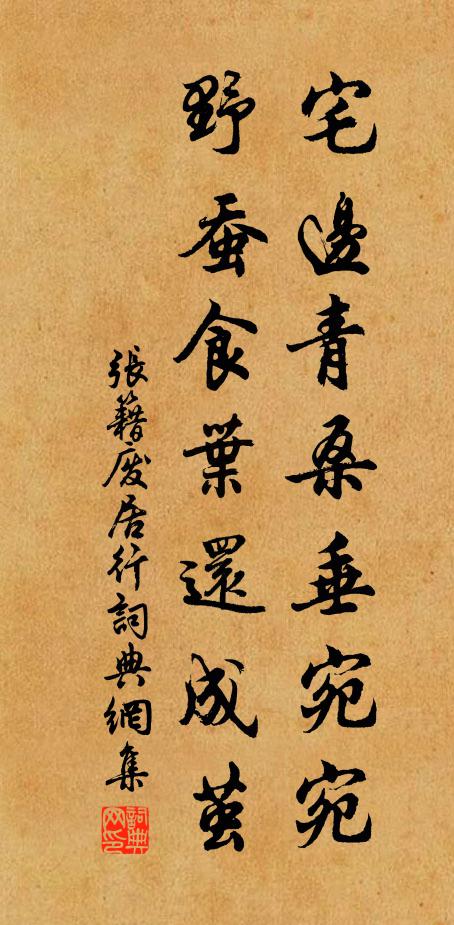 宅邊青桑垂宛宛
野蚕食葉還成茧
張籍廢居行詞典網集
詞典網印